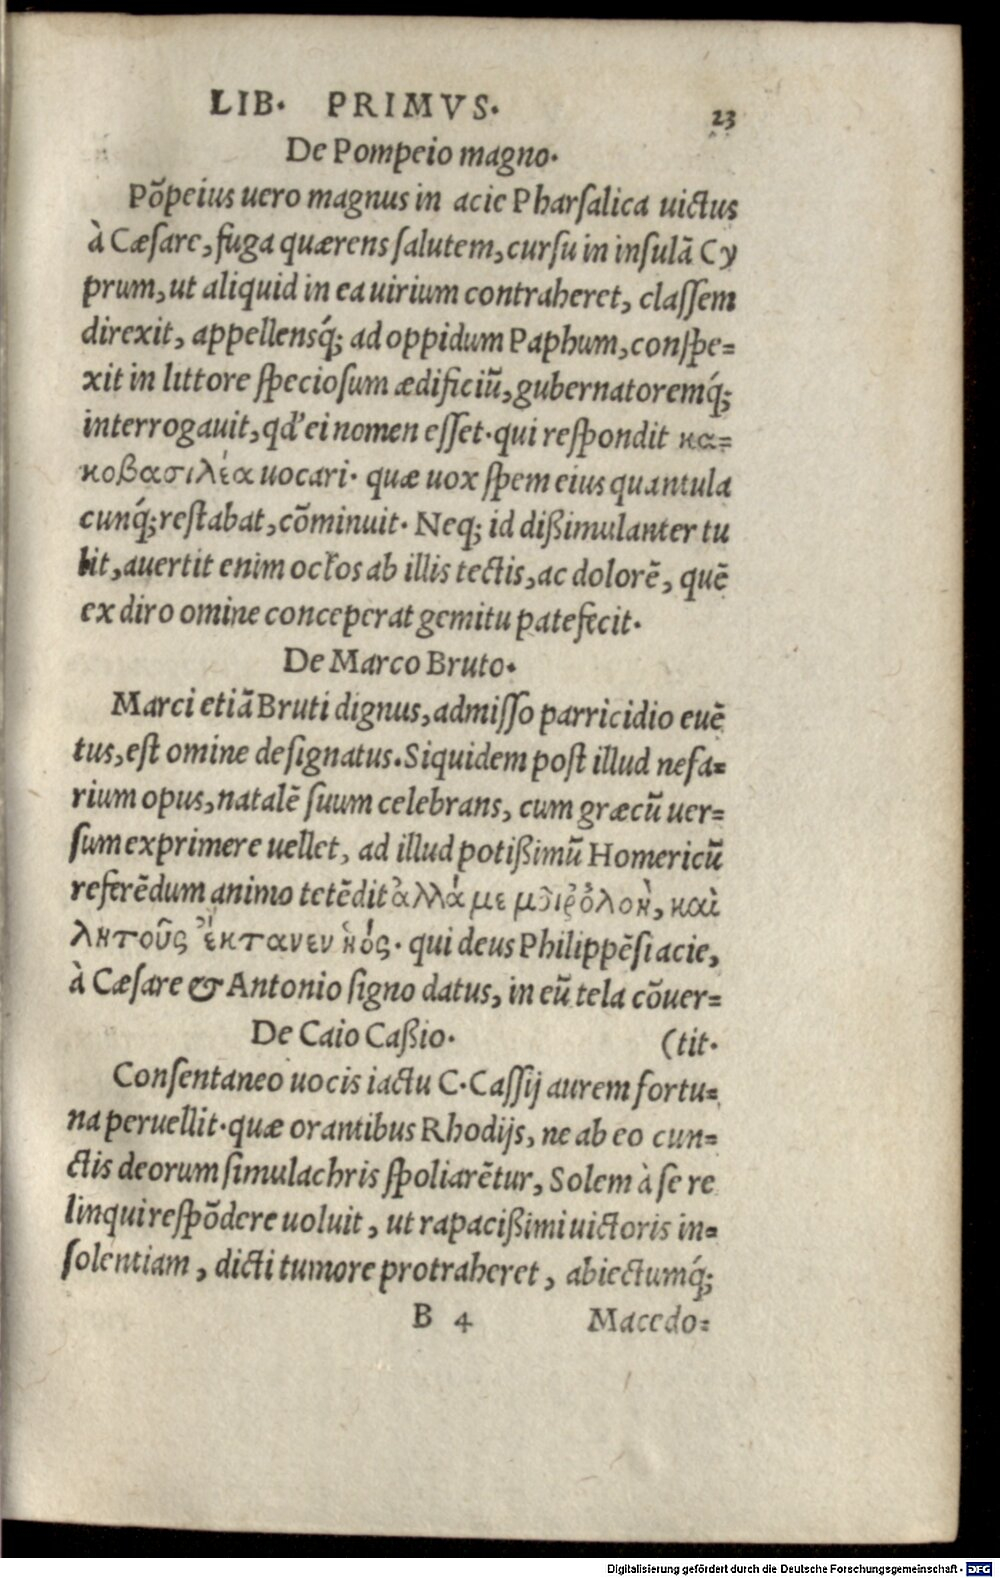 LIB. PRIMVS. 23
De Pompeio magno.
Põpeius uero magnus in acie Pharſalica uictus
à Cæſare, fuga quærens ſalutem, curſu in inſulã Cy
prum, ut aliquid in ea uirium contraheret, claſſem
direxit, appellensq́; ad oppidum Paphum, conſpe=
xit in littore ſpecioſum ædificiũ, gubernatoremq́;
interrogauit, qď ei nomen eſſet. qui reſpondit κα=
κοβασιλέα uocari. quæ uox ſpem eius quantula
cunq́; reſtabat, cõminuit. Neq; id dißimulanter tu
lit, auertit enim ocľos ab illis tectis, ac dolorẽ, quẽ
ex diro omine conceperat gemitu patefecit.
De Marco Bruto.
Marci etiã Bruti dignus, admiſſo parricidio euẽ
tus, eſt omine deſignatus. Siquidem poſt illud nefa=
rium opus, natalẽ ſuum celebrans, cum græcũ uer=
ſum exprimere uellet, ad illud potißimũ Homericũ
referẽdum animo tetẽdit ἀλλά με μοῖρ ὀλοὴ, καὶ
λητοῦς ἔκτανεν ὑός. qui deus Philippẽſi acie,
à Cæſare & Antonio ſigno datus, in eũ tela cõuer=
De Caio Caßio. (tit.
Conſentaneo uocis iactu C. Caſſij aurem fortu=
na peruellit. quæ orantibus Rhodijs, ne ab eo cun=
ctis deorum ſimulachris ſpoliarẽtur, Solem à ſe re
linqui reſpõdere uoluit, ut rapacißimi uictoris in=
ſolentiam, dicti tumore protraheret, abiectumq́;
B 4 Macedo=
Digitalisierung gefördert durch die Deutsche Forschungsgemeinschaft - DFG